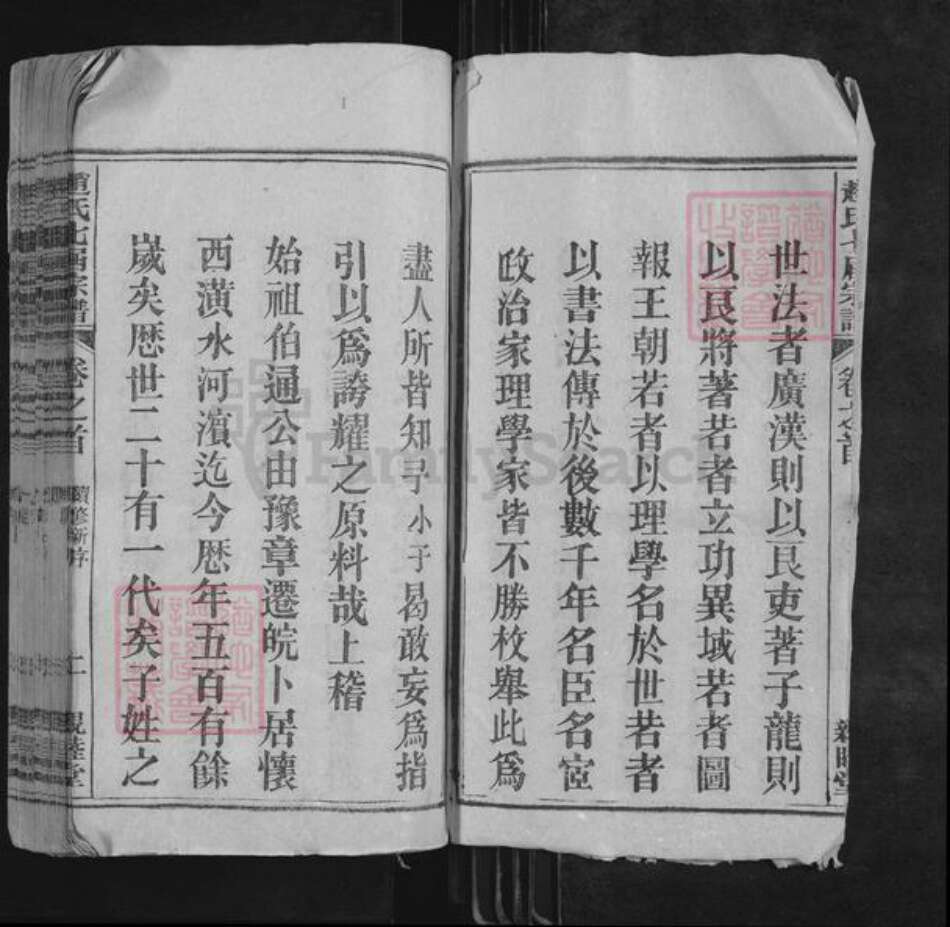 世法者廣漢則以良吏著子龍則
以良將著若者立功異域若者圖
報王朝若者以理學名於世若者
以書法傳於後數千年名臣名宦
政治家理學家皆不勝枚舉此爲
盡人所皆知予小子曷敢妄爲指
引以爲誇耀之原料哉上稽
始祖伯通公由豫章遷皖卜居懷
西潢水河濱迄今歷年五百有餘
歲矣歷世二十有一代矣子姓之
趙氏七庿宗譜
卷之首
續修新序
二
親睦堂
FamilySearch